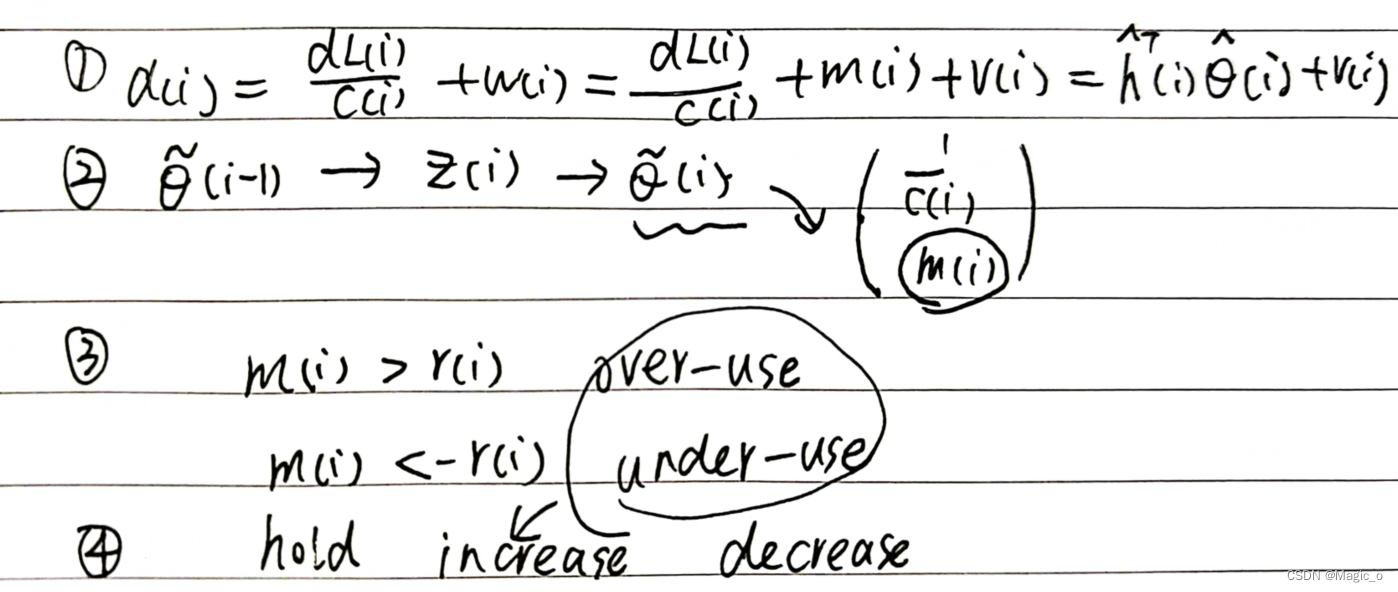 ① d(i) = dL(i)/C(i) + w(i) = dL(i)/C(i) + m(i) + v(i) = ĥᵀ(i) θ̂(i) + v(i)
② θ̃(i-1) → z(i) → θ̃(i) ↘ (1/C(i) m(i))
③ m(i) > r(i) over-use
m(i) < -r(i) under-use
④ hold increase decrease
CSDN @Magic_o